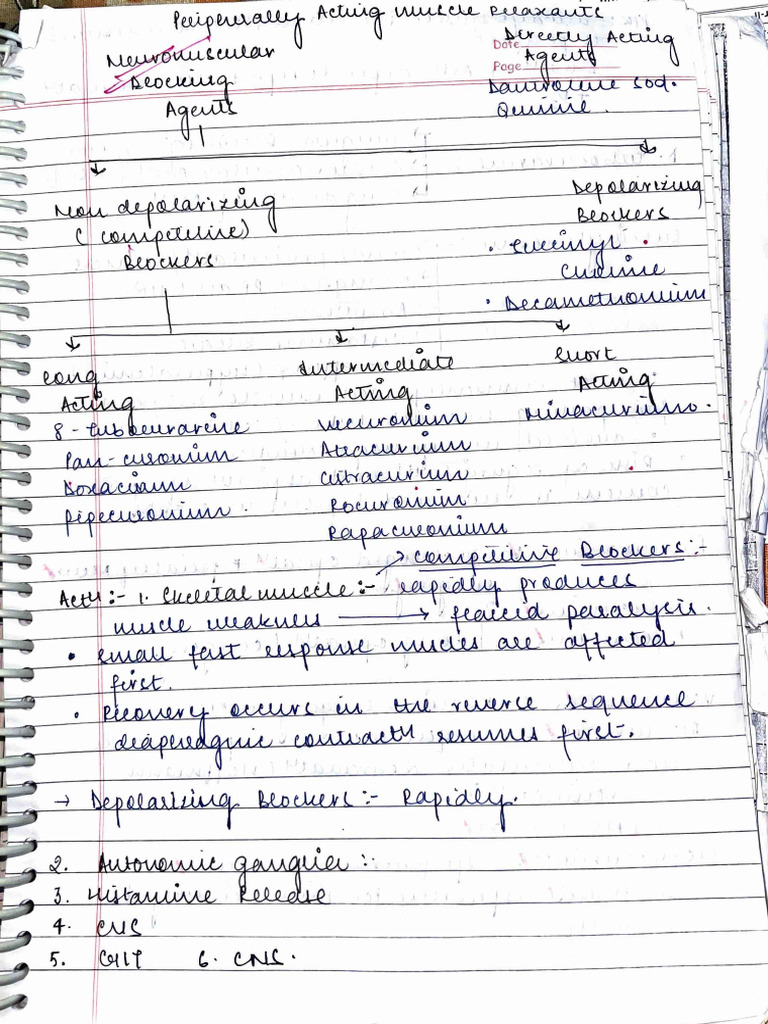 Peripherally Acting Muscle Relaxants
Neuromuscular
Blocking
Agents
Date
Page
Directly Acting
Agents
Dantrolene sod.
Quinine.
Non depolarizing
(competitive)
Blockers
Depolarizing
Blockers
• Succinyl
Choline
• Decamethonium
Long
Acting
Intermediate
Acting
Short
Acting
Pan-curonium
Doxacium
Pipecuronium
Vecuronium
Atracurium
Cistracurium
Rocuronium
Rapacuronium
Mivacurium.
→ competitive Blockers :-
Actn :- 1. Skeletal muscle :- rapidly produces
muscle weakness → flaccid paralysis.
• small fast response muscles are affected
first.
• Recovery occurs in the reverse sequence
first.
→ Depolarizing Blockers :- Rapidly.
2. Autonomic ganglia :-
3. Histamine Release
4.
5. GIT 6. CNS.